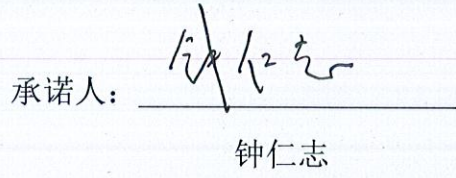 承诺人：钟仁志
钟仁志